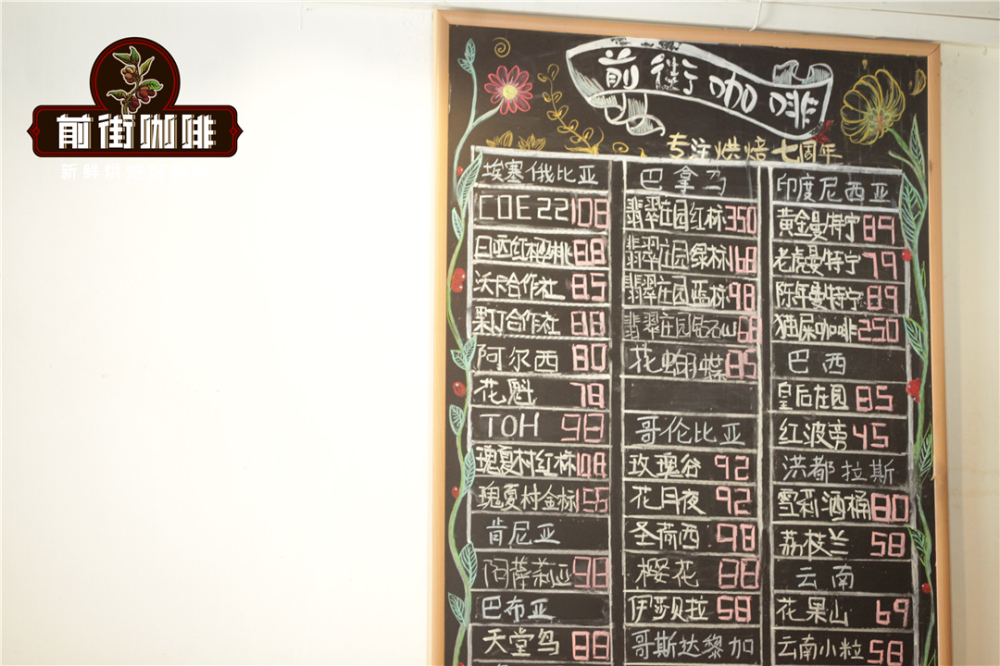 前街咖啡
前街咖啡
专注烘焙七周年
埃塞俄比亚
COE22 108
日晒红樱桃 88
沃卡合作社 85
果丁合作社 88
阿尔西 80
花魁 78
TOH 98
瑰夏村红标 108
瑰夏村金标 155
肯尼亚
阿萨莉亚 98
巴布亚
天堂鸟 88
巴拿马
翡翠庄园红标 350
翡翠庄园绿标 168
翡翠庄园蓝标 98
翡翠庄园钻石山 68
花蝴蝶 85
哥伦比亚
玫瑰谷 92
花月夜 92
圣荷西 98
樱花 88
伊莎贝拉 58
哥斯达黎加
印度尼西亚
黄金曼特宁 89
老虎曼特宁 79
陈年曼特宁 89
猫屎咖啡 250
巴西
皇后庄园 85
红波旁 45
洪都拉斯
雪莉酒桶 80
荔枝兰 58
云南
花果山 69
云南小粒 58